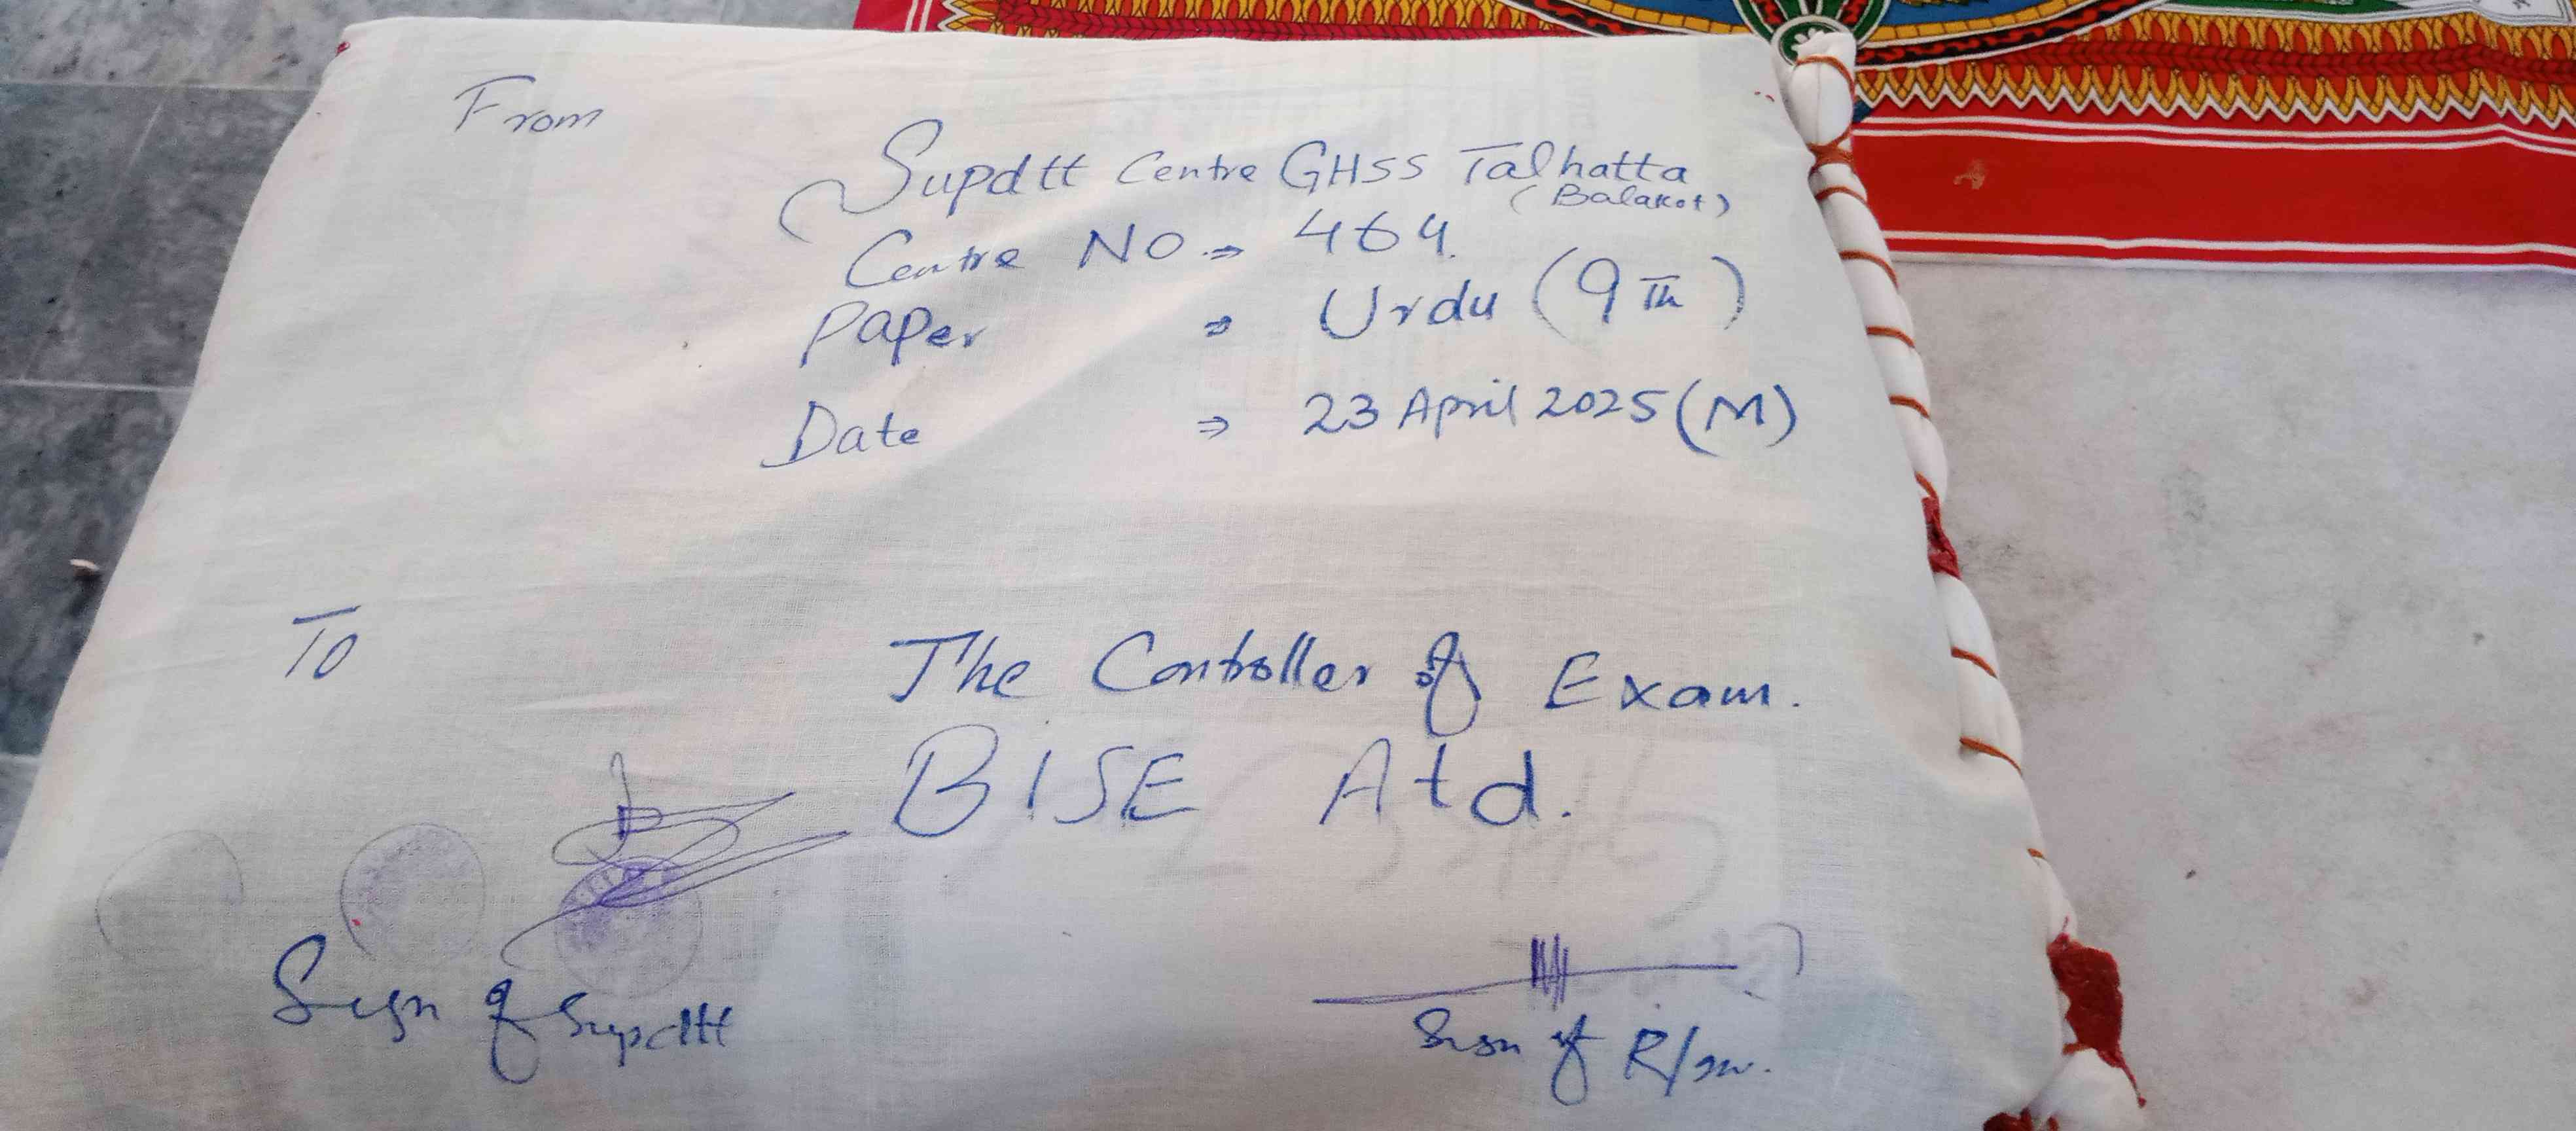 From
Supdtt Centre GHSS Talhatta
(Balakot)
Centre NO. ⇒ 464.
Paper ⇒ Urdu (9Th)
Date ⇒ 23 April 2025 (M)
To
The Controller of Exam.
BISE Atd.
Sign of Supdtt
Sign of R/m.